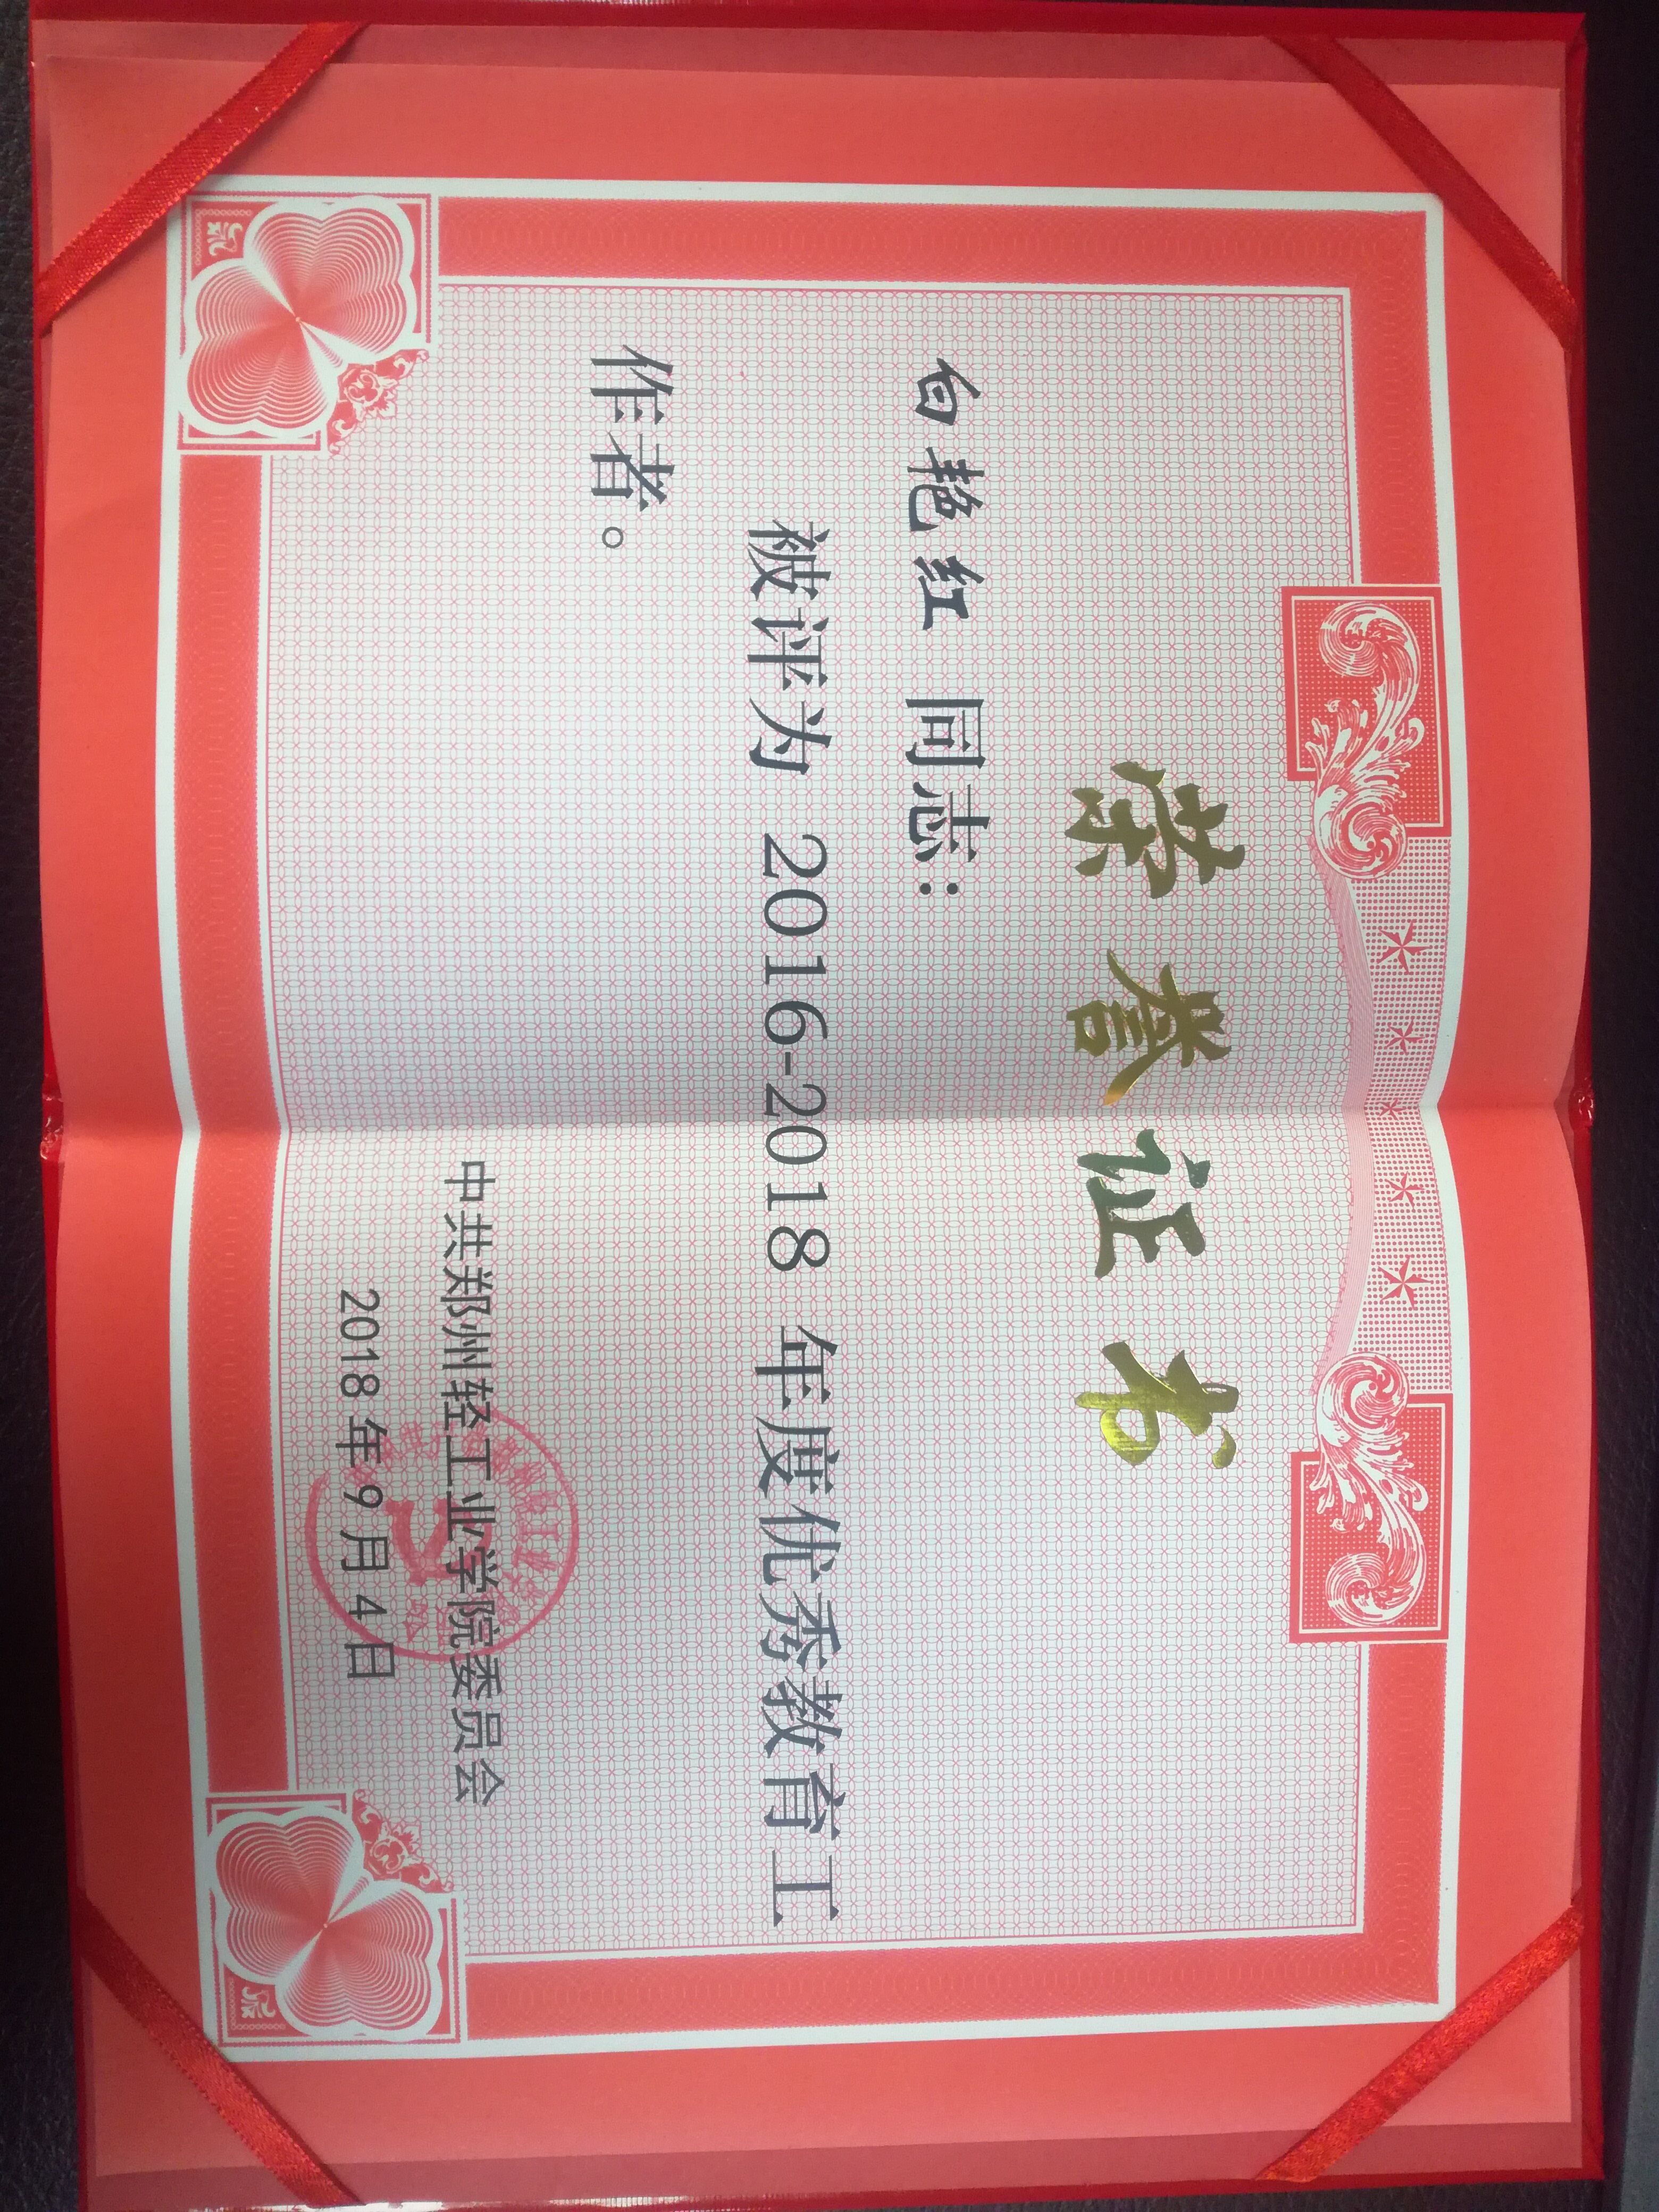 荣誉证书
白艳红 同志：
被评为 2016-2018 年度优秀教育工
作者。
中共郑州轻工业学院委员会
2018 年 9 月 4 日